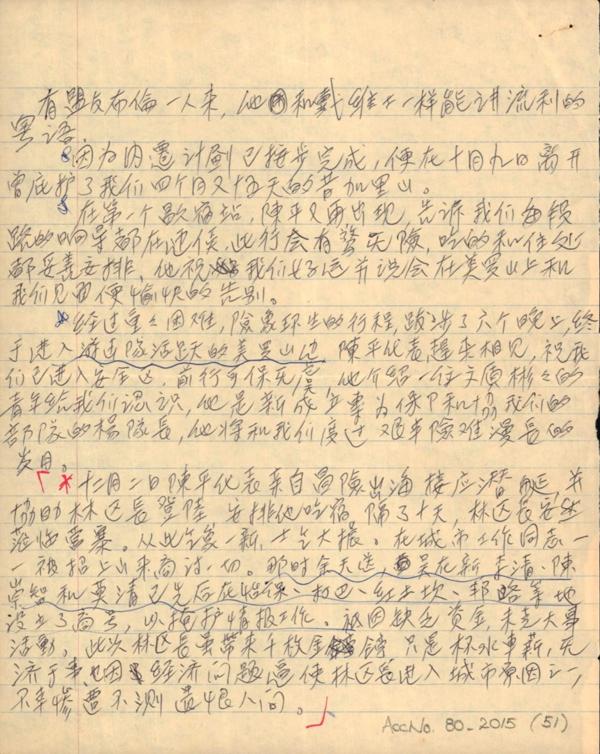 有盟友布倫一人來，他和戴維斯一样能讲流利的
粤语。
因为内遷计劃已按步完成，便在十月九日离开
曾庇护了我们四个月又十五天的昔加里山。
在第一个歇宿站，陳平又再出现，告诉我们每段
路的响导都在迎候，此行会有驚无險，吃的和住处
都妥善安排。他祝我们好运并说会在美罗山上和
我们见面便愉快的告别。
经过重々困难，險象环生的行程，跋涉了六个晚上，终
于进入游击隊活跃的美罗山边 陳平代表趕来相见，祝我
们已进入安全区，前行可保无虞，他介绍一位文质彬々的
青年给我们认识，他是新成立专为保卫和协我们的
部隊的楊隊長，他将和我们度过艰辛險难漫長的
岁月。
十二月二日陳平代表亲自冒險出海接应潜艇，并
協助林区長登陸 安排他吃宿 隔了十天，林区長安坐
莅临营寨。从此全寨一新，士气大振。在城市工作同志一
一被招上山来商讨一切。那时余天送，吴在新 李清、陳
崇智和莫清已先后在怡保、打巴、红土坎、邦略等地
设立了商号，以掩护情报工作。祗因缺乏资金，未克大事
活動，此次林区長虽带来千枚金镑 只是杯水車薪，无
济于事 因经济问题逼使林区長进入城市原因之一，
不幸惨遭不测遺恨人间。
AccNo. 80-2015 (51)